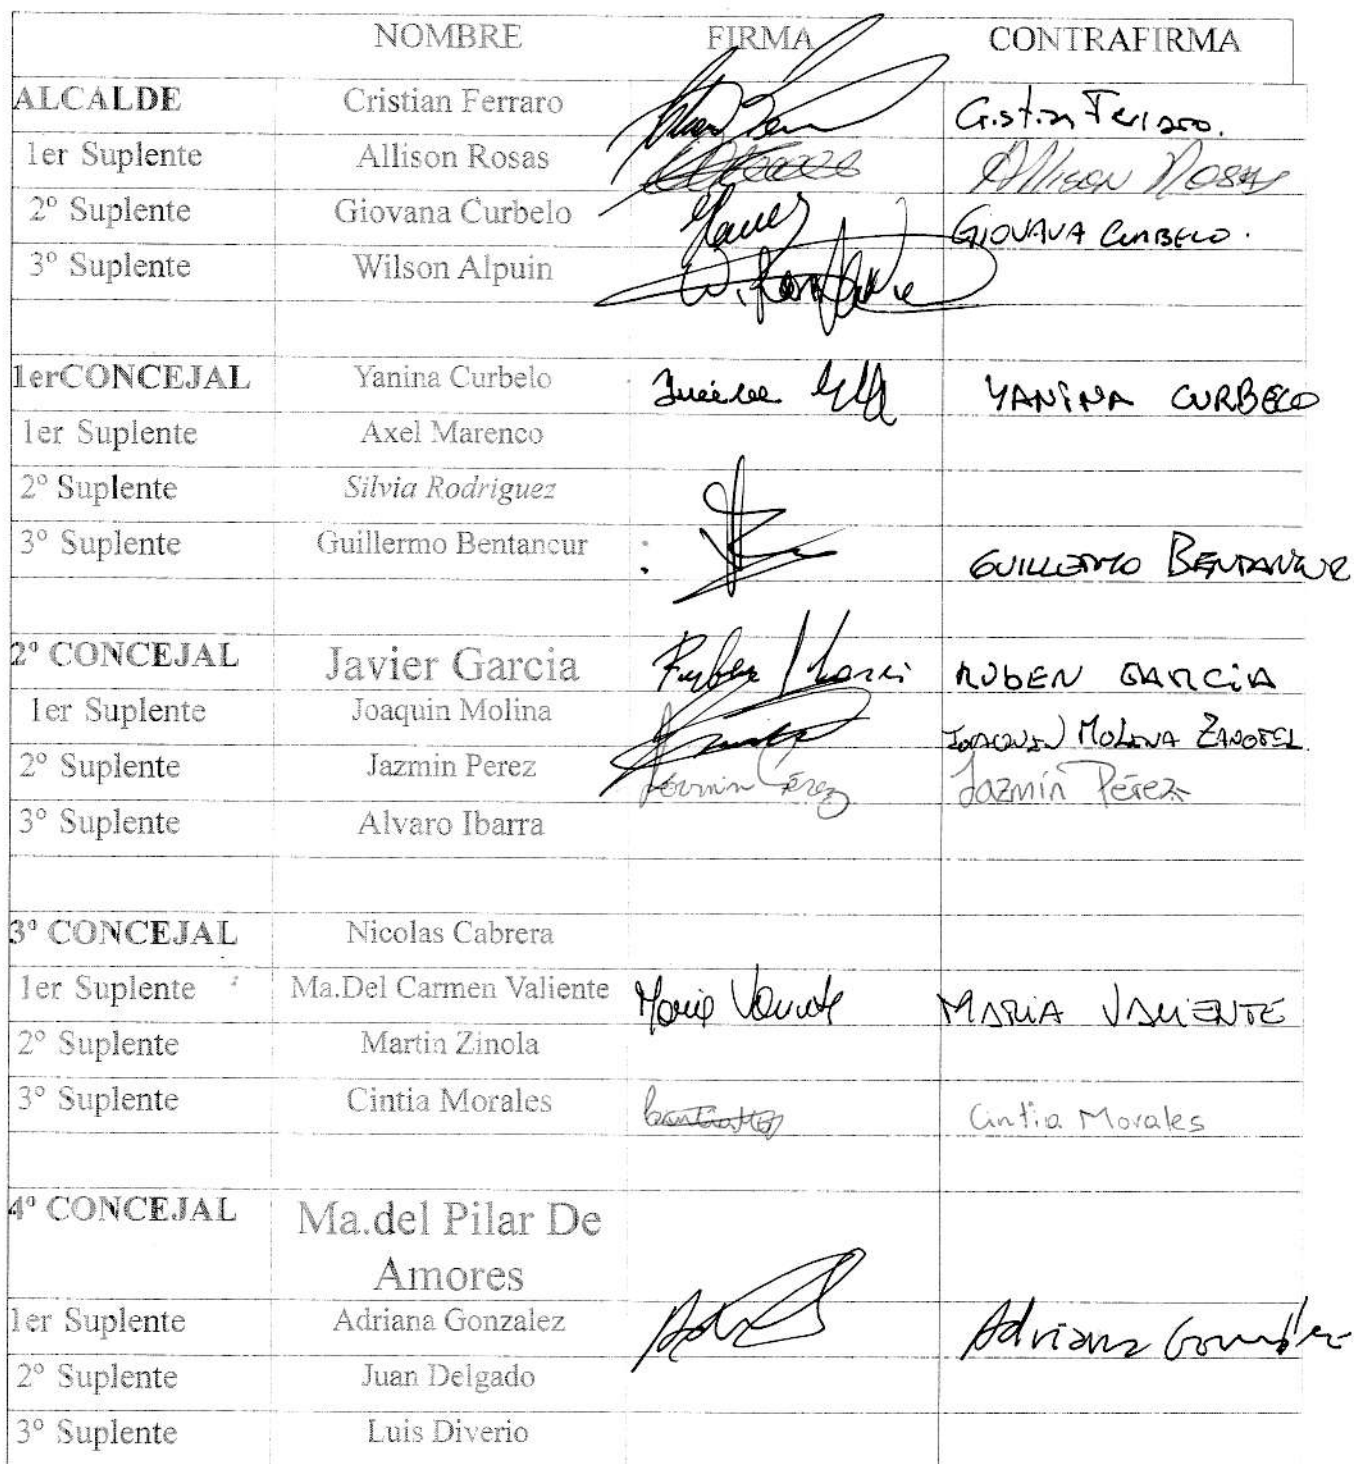 NOMBRE FIRMA CONTRAFIRMA
ALCALDE Cristian Ferraro Cristian Ferraro.
1er Suplente Allison Rosas Allison Rosas
2º Suplente Giovana Curbelo GIOVANA CURBELO.
3º Suplente Wilson Alpuin
1erCONCEJAL Yanina Curbelo YANINA CURBELO
1er Suplente Axel Marenco
2º Suplente Silvia Rodriguez
3º Suplente Guillermo Bentancur : GUILLERMO BENTANCUR
2º CONCEJAL Javier Garcia Ruben RUBEN GARCIA
1er Suplente Joaquin Molina JOAQUIN MOLINA
2º Suplente Jazmin Perez Jazmín Pérez Jazmín Pérez
3º Suplente Alvaro Ibarra
3º CONCEJAL Nicolas Cabrera
1er Suplente Ma.Del Carmen Valiente Maria Valiente MARIA VALIENTE
2º Suplente Martin Zinola
3º Suplente Cintia Morales Cintia Morales
4º CONCEJAL Ma.del Pilar De
Amores
1er Suplente Adriana Gonzalez Adriana González
2º Suplente Juan Delgado
3º Suplente Luis Diverio